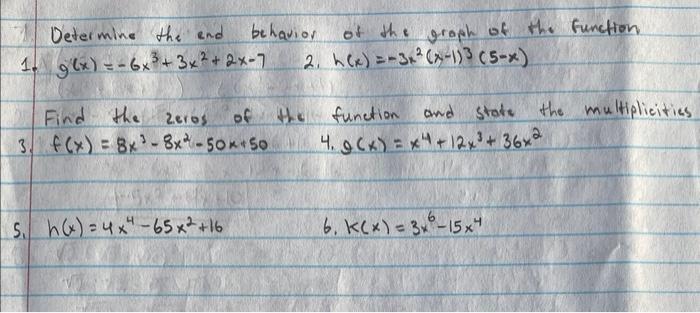 Determine the end behavior of the graph of the function
1. g(x) = -6x³ + 3x² + 2x - 7 2. h(x) = -3x² (x-1)³ (5-x)
Find the zeros of the function and state the multiplicities
3. f(x) = 8x³ - 8x² - 50x + 50 4. g(x) = x⁴ + 12x³ + 36x²
5. h(x) = 4x⁴ - 65x² + 16 6. K(x) = 3x⁶ - 15x⁴